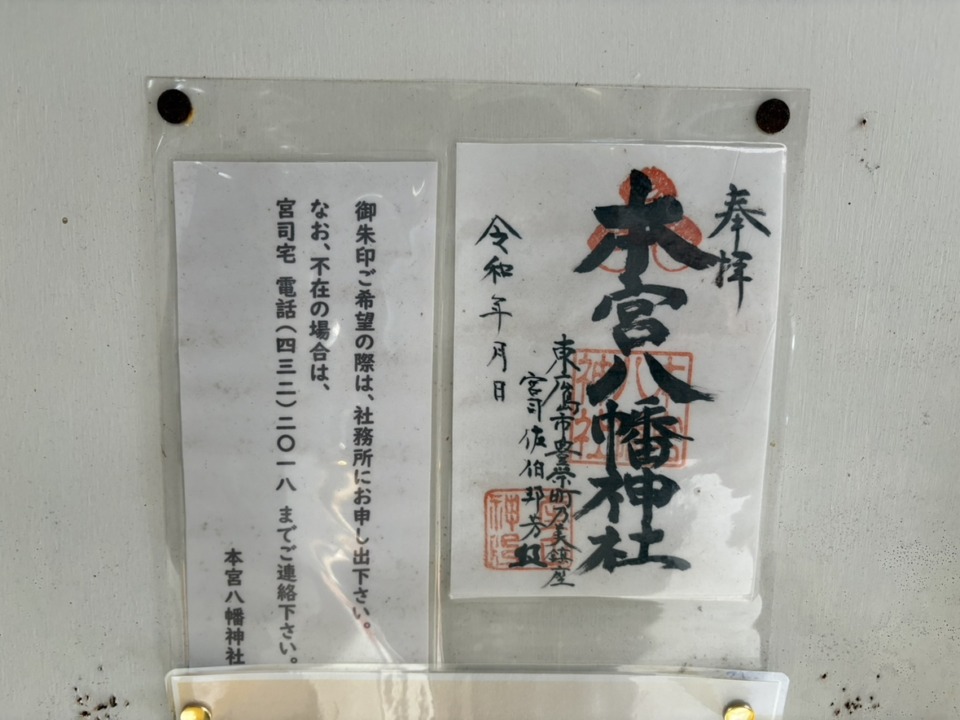 奉拝
本宮八幡神社
東広島市豊栄町乃美鎮座
宮司佐伯邦芳
令和年月日
御朱印ご希望の際は、社務所にお申し出下さい。
なお、不在の場合は、
宮司宅 電話(四三二)二〇一八 までご連絡下さい。
本宮八幡神社